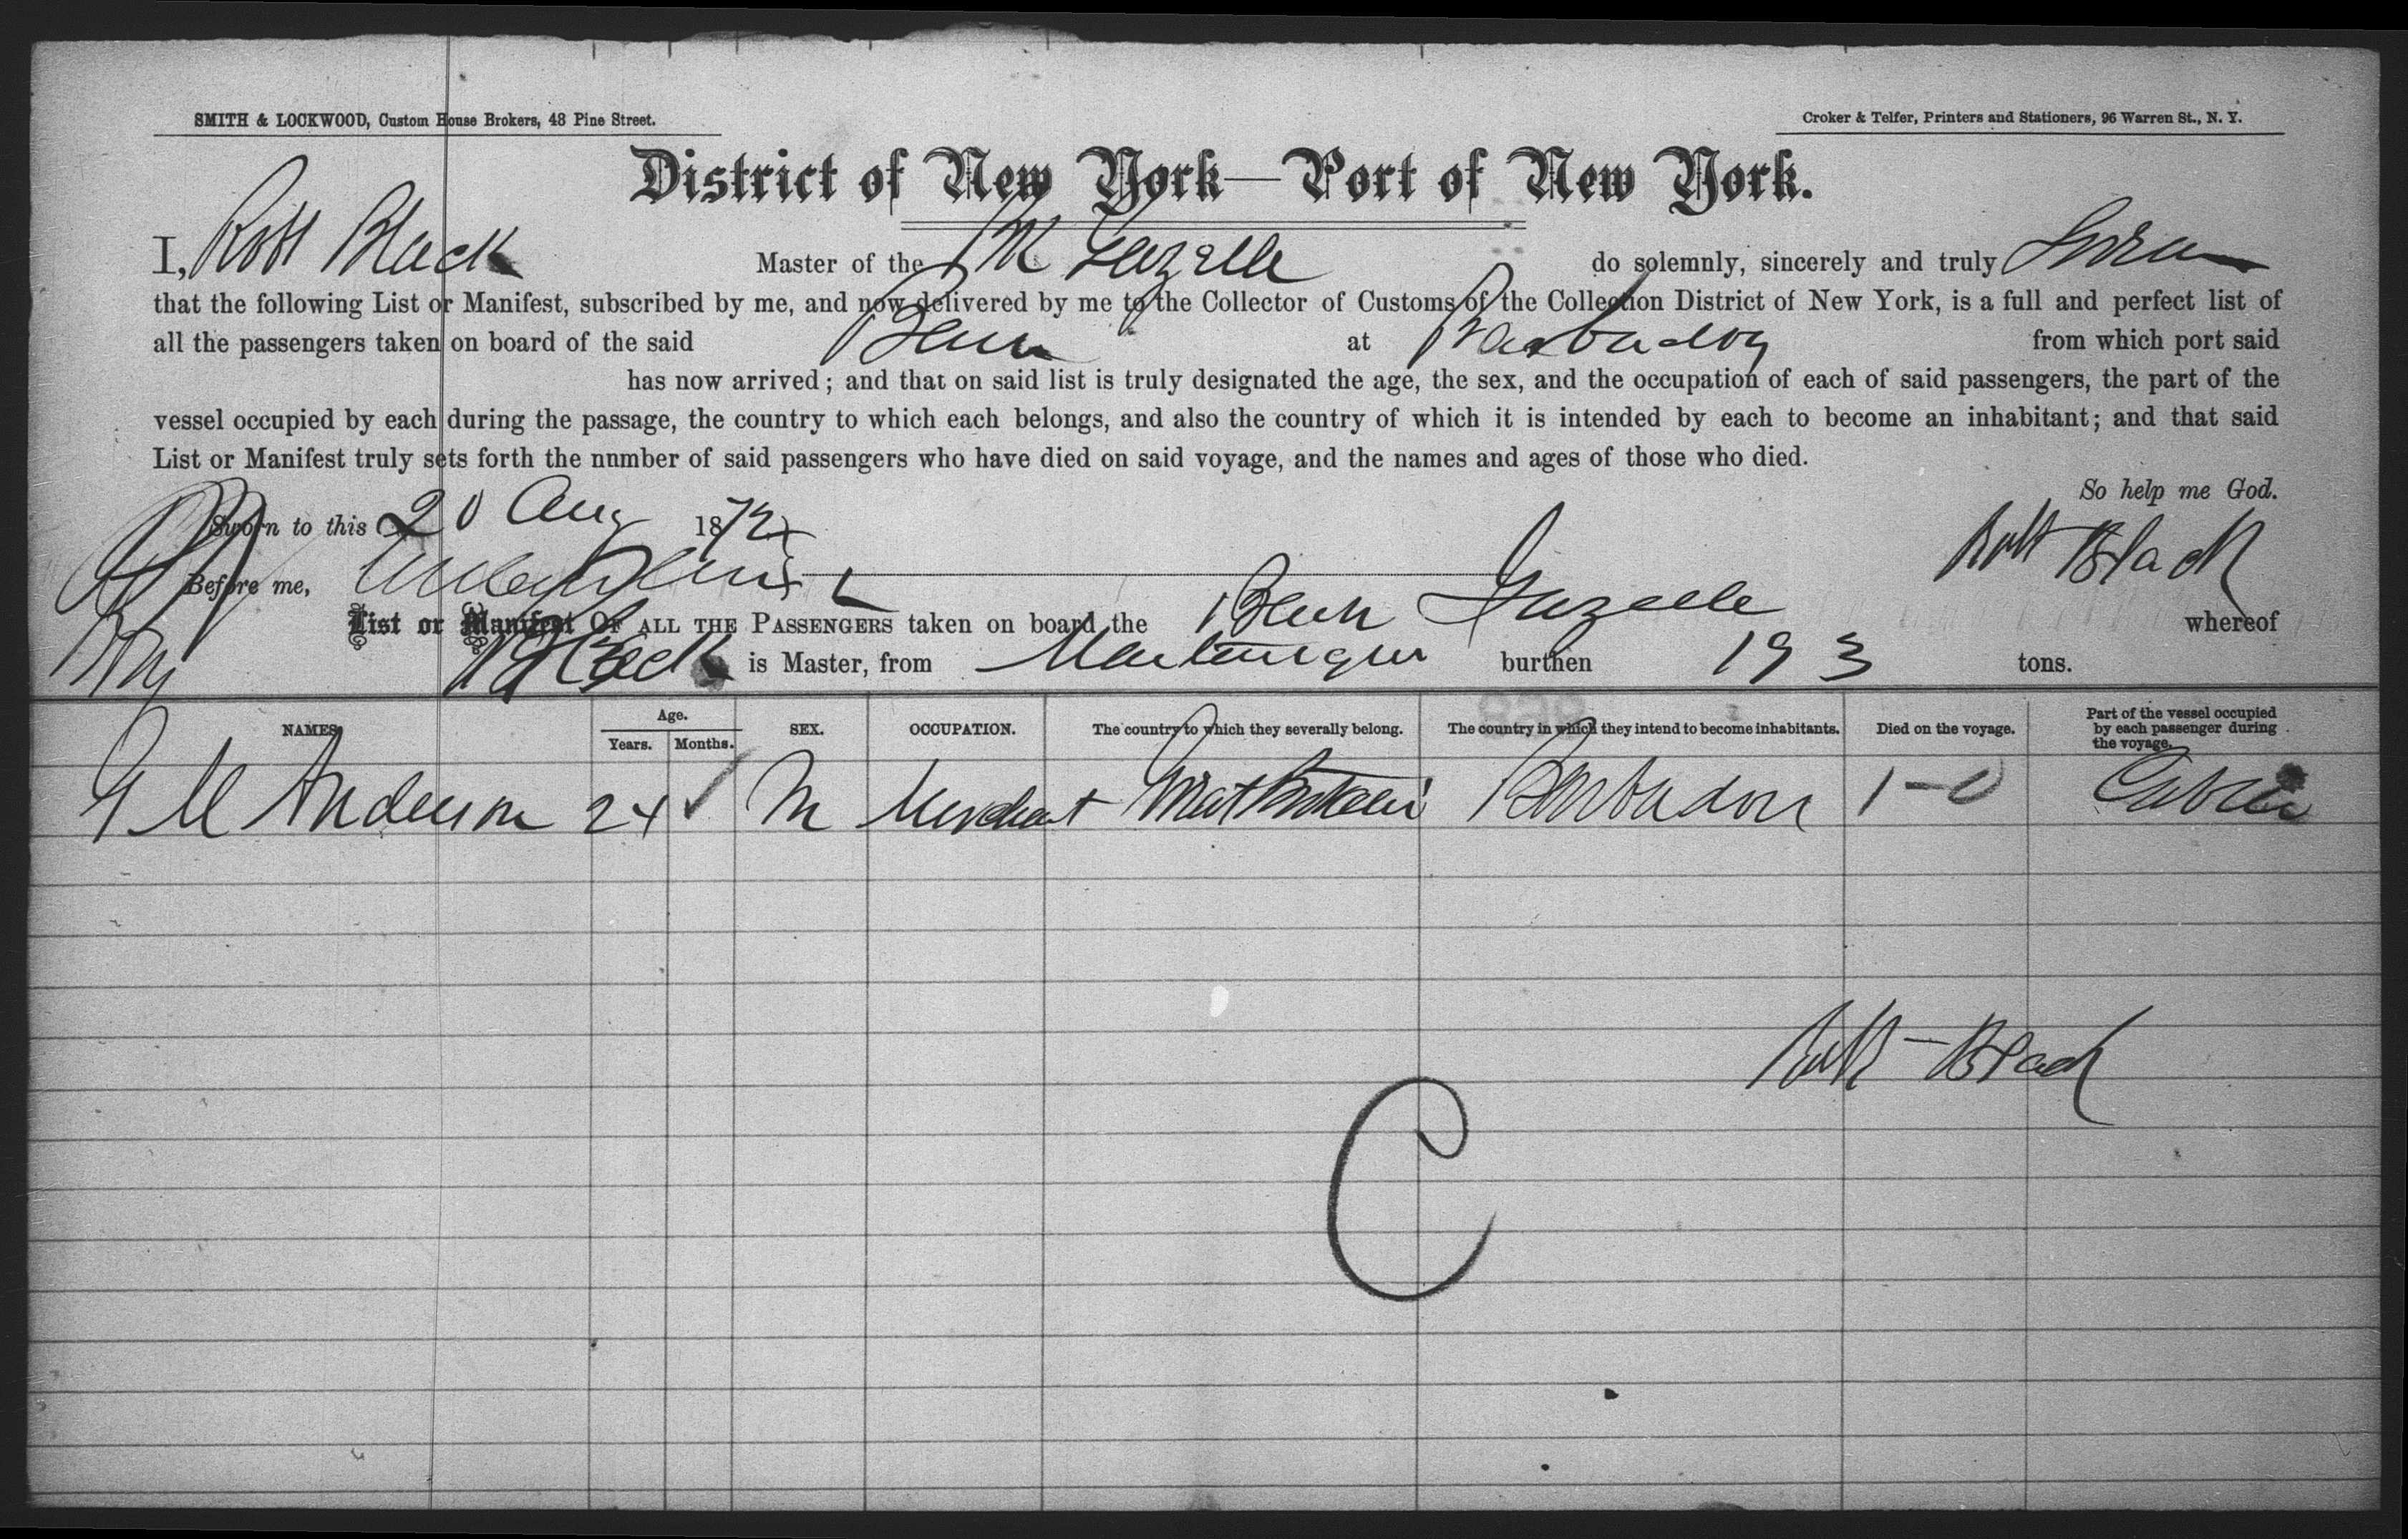 SMITH & LOCKWOOD, Custom House Brokers, 48 Pine Street.
Croker & Telfer, Printers and Stationers, 96 Warren St., N. Y.
District of New York—Port of New York.
I, Robt Black Master of the Gazelle do solemnly, sincerely and truly Swear
that the following List or Manifest, subscribed by me, and now delivered by me to the Collector of Customs of the Collection District of New York, is a full and perfect list of
all the passengers taken on board of the said at Barbados from which port said
has now arrived; and that on said list is truly designated the age, the sex, and the occupation of each of said passengers, the part of the
vessel occupied by each during the passage, the country to which each belongs, and also the country of which it is intended by each to become an inhabitant; and that said
List or Manifest truly sets forth the nnmber of said passengers who have died on said voyage, and the names and ages of those who died.
So help me God.
Sworn to this 20 Aug 1872
Robt Black
Before me,
List or Manifest OF ALL THE PASSENGERS taken on board the Gazelle whereof
Black is Master, from Martinique burthen 193 tons.
NAMES. Age. Years. Months. SEX. OCCUPATION. The country to which they severally belong. The country in which they intend to become inhabitants. Died on the voyage. Part of the vessel occupied by each passenger during the voyage.
G M Anderson 24 M Merchant Great Britain Barbados 1-0 Cabin
Robt Black
C